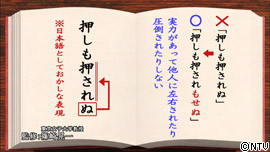 ✕「押しも押されぬ」
○「押しも押されもせぬ」
実力があって他人に左右されたり
圧倒されたりしない
押しも押されぬ
※日本語としておかしな表現
東京女子大学教授
監修:篠崎晃一
©NTV